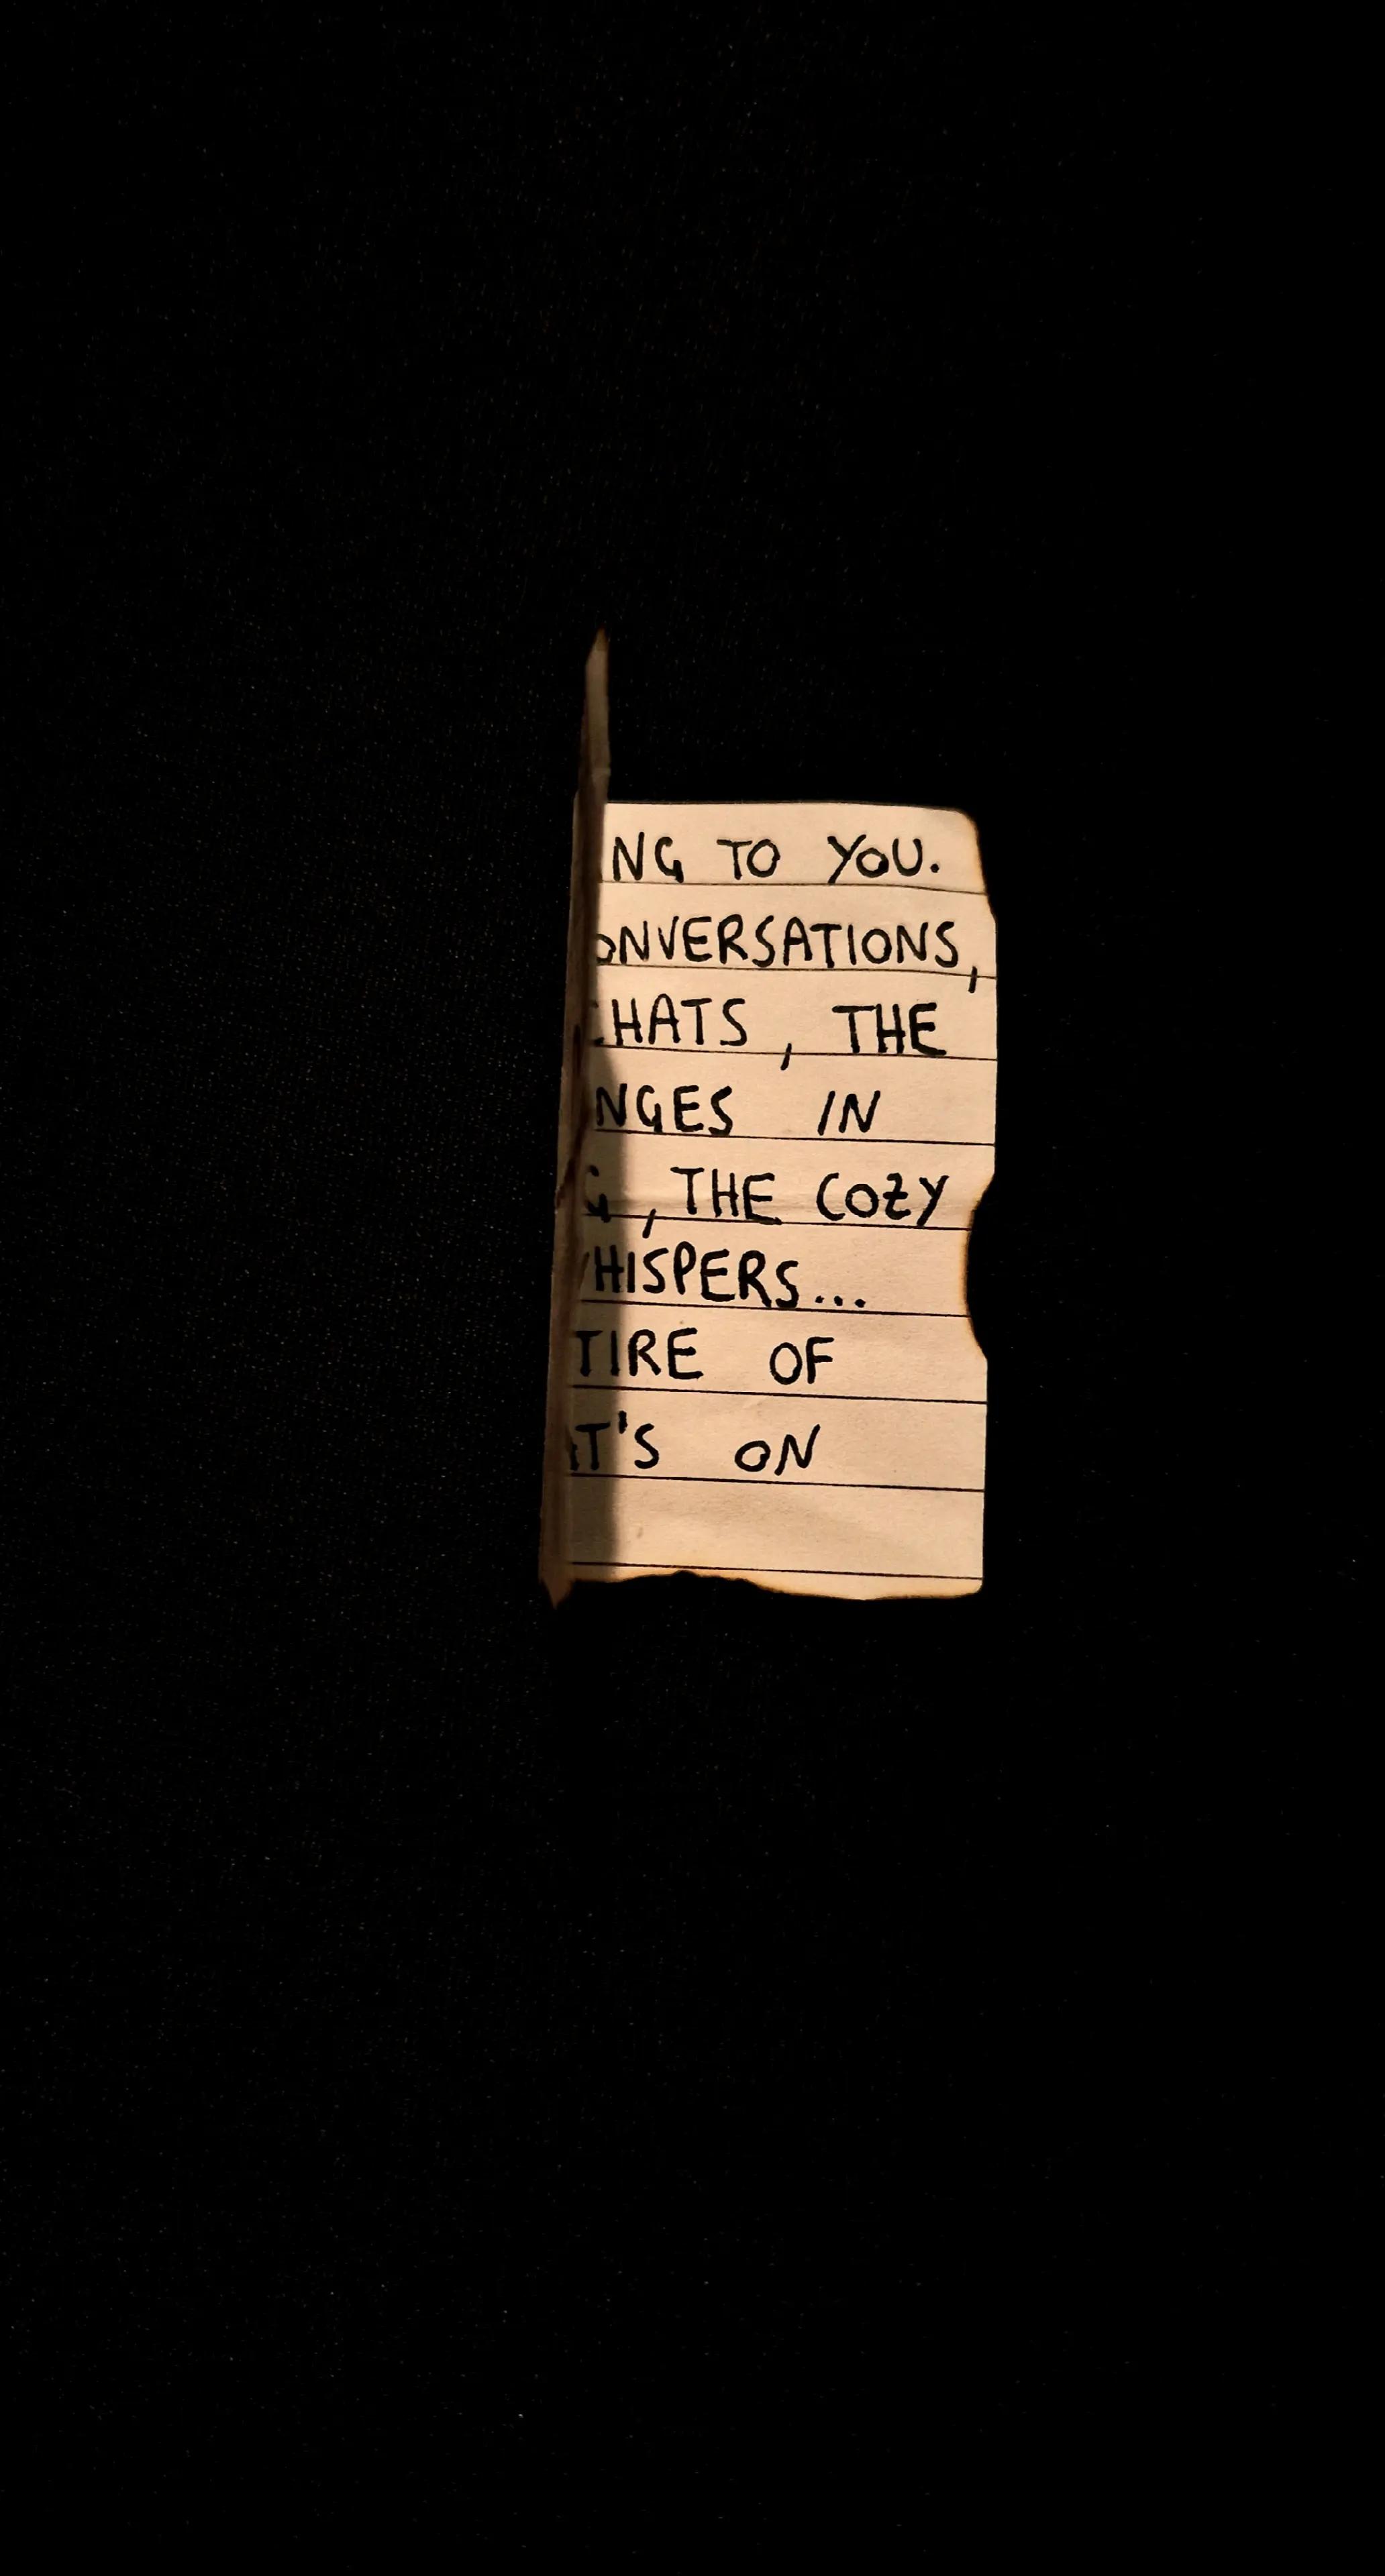 NG TO YOU.
ONVERSATIONS,
CHATS, THE
NGES IN
G, THE COZY
WHISPERS...
TIRE OF
AT'S ON